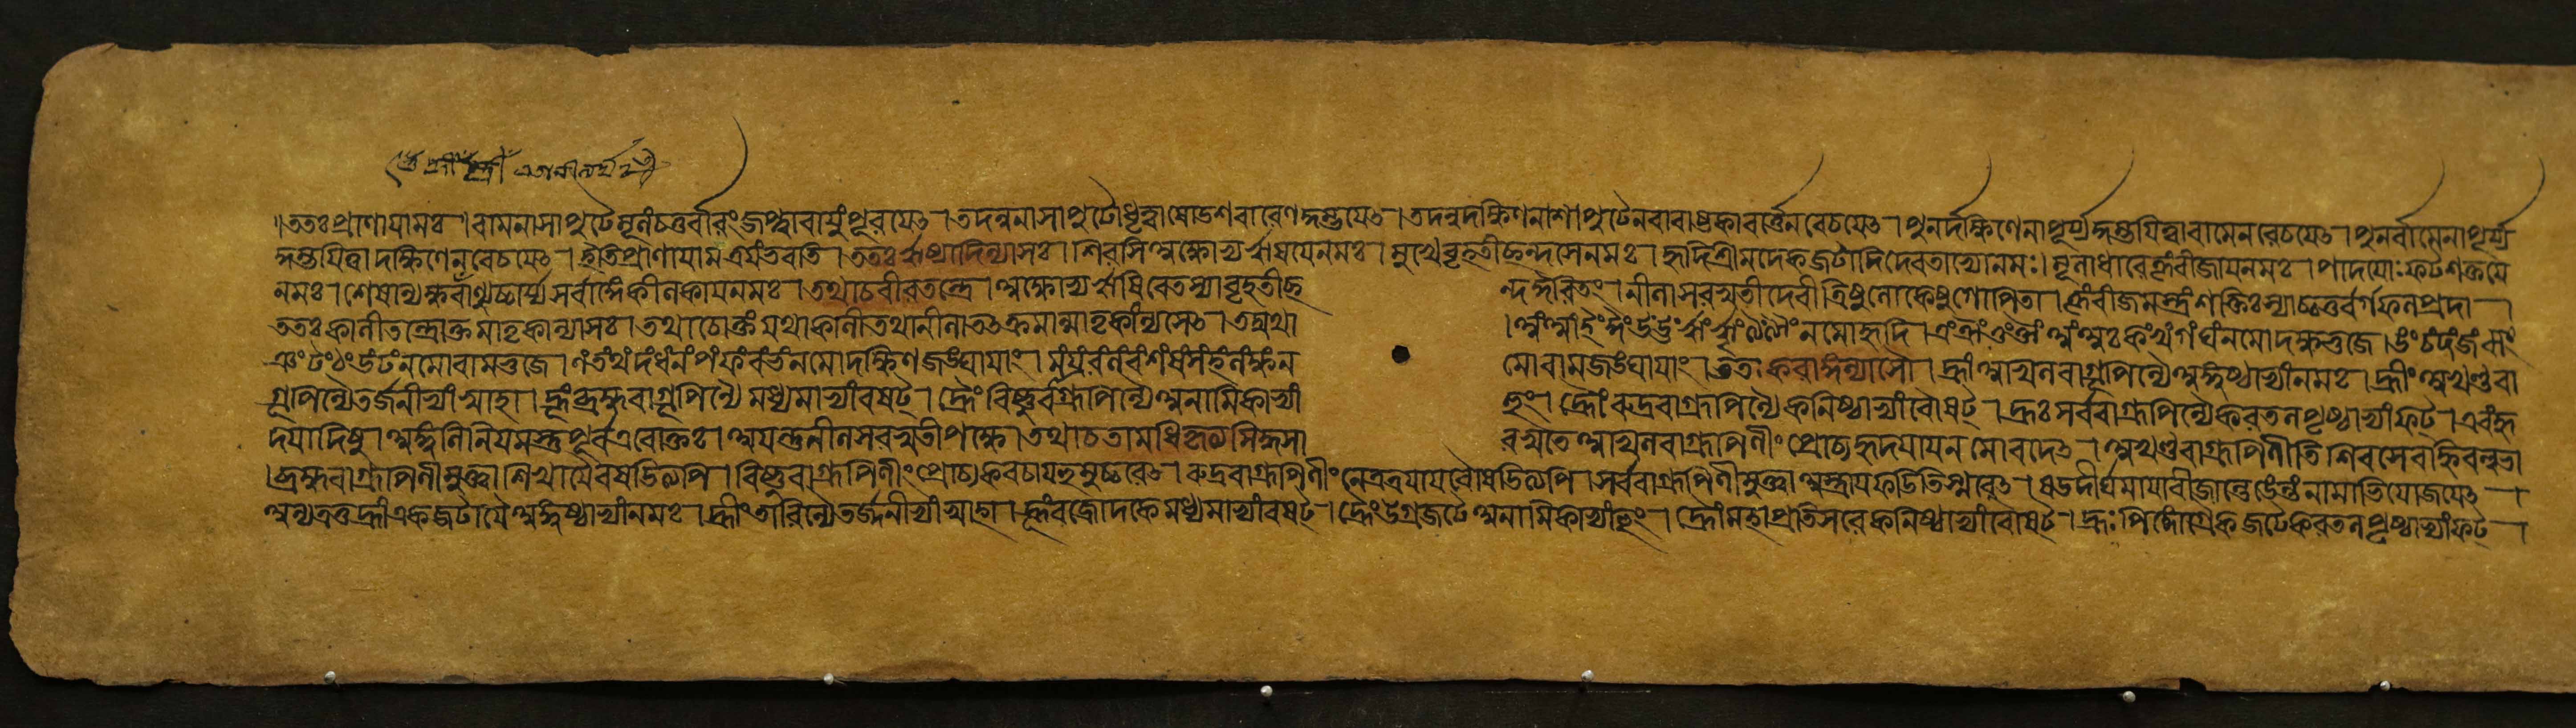 ।ততঃ প্রাণায়ামঃ । বামনাসাপুটে মূলং চতুর্বারং জপ্ত্বা বায়ুং পূরয়েৎ । তদনু নাসাপুটৌ ধৃত্বা ষোডশবারেণ স্তম্ভয়েৎ । তদনু দক্ষিণনাসাপুটেন রেচয়েৎ । পুনর্দক্ষিণেনাপূর্য্য স্তম্ভয়িত্বা বামেন রেচয়েৎ । পুনর্বামেনাপূর্য্য
স্তম্ভয়িত্বা দক্ষিণেন রেচয়েৎ । ইতি প্রাণায়াম ভবতি । ততঃ ঋষ্যাদিন্যাসঃ । শিরসি অক্ষোভ্য ঋষয়ে নমঃ । মুখে বৃহতীছন্দসে নমঃ । হৃদি শ্রীমদেকজটাদিদেবতাভ্যো নমঃ । মূলাধারে হ্রূং বীজায় নমঃ । পাদয়োঃ ফট্ শক্তয়ে
নমঃ । শেষান্যক্ষর সর্বাঙ্গে কীলকায় নমঃ । তথা চ বীরতন্ত্রে । অক্ষোভ্য ঋষিরেতস্যা বৃহতীছ ন্দ ঈরিতং । নীলাসরস্বতী দেবী ত্রিষু লোকেষু গোপিতা । হ্রূং বীজমস্ত্রং শক্তিঃ স্যাচ্চতুর্বর্গফলপ্রদা ।
ততঃ কালীতন্ত্রোক্তমাতৃকান্যাসঃ । তথা চোক্তং যথা কালী তথা নীলা তৎক্রমান্মাতৃকাং ন্যসেৎ । তদ্যথা । অং আং ইং ঈং উং ঊং ঋং ৠং ঌং ৡং নমো হৃদি । এং ঐং ওং ঔং অং অঃ কং খং গং ঘং নমো দক্ষভুজে । ঙং চং ছং জং ঝং
ঞং টং ঠং ডং ঢং নমো বামভুজে । ণং তং থং দং ধং নং পং ফং বং ভং নমো দক্ষিণজঙ্ঘায়াং । মং যং রং লং বং শং ষং সং হং লং ক্ষং ন মো বামজঙ্ঘায়াং । ততঃ করাঙ্গন্যাসৌ । হ্রাং অখিলবাগ্রূপিণ্যৈ অঙ্গুষ্ঠাভ্যাং নমঃ । হ্রীং অখণ্ডবা
গ্রূপিণ্যৈ তর্জনীভ্যাং স্বাহা । হ্রূং ব্রহ্মবাগ্রূপিণ্যৈ মধ্যমাভ্যাং বষট্ । হ্রৈং বিষ্ণুবাগ্রূপিণ্যৈ অনামিকাভ্যাং হুং । হ্রৌং রুদ্রবাগ্রূপিণ্যৈ কনিষ্ঠাভ্যাং বৌষট্ । হ্রঃ সর্ববাগ্রূপিণ্যৈ করতলপৃষ্ঠাভ্যাং ফট্ । এবং হৃ
দয়াদিষু । পূর্ব এবোক্তঃ । নীলসরস্বতীপক্ষে । তথা চ রস্বতে অখিলবাগ্রূপিণীং প্রোচ্য হৃদয়ায় নমো বদেৎ । অখণ্ডবাগ্রূপিণীতি শিরসে বহ্নিবল্লভা
। ব্রহ্মবাগ্রূপিণীমুক্ত্বা শিখায়ৈ বষডিত্যপি । বিষ্ণুবাগ্রূপিণীং প্রোচ্য কবচায় হুমুচ্চরেৎ । রুদ্রবাগ্রূপিণীং নেত্রত্রয়ায় বৌষডিত্যপি । সর্ববাগ্রূপিণীমুক্ত্বা অস্ত্রায় ফডিতি স্মরেৎ । ষড্দীর্ঘমায়াবীজান্তে নামাভিযোজয়েৎ ।
অন্যত্র তু হ্রাং একজটায়ৈ অঙ্গুষ্ঠাভ্যাং নমঃ । হ্রীং তারিণ্যৈ তর্জনীভ্যাং স্বাহা । হ্রূং বজ্রোদকে মধ্যমাভ্যাং বষট্ । হ্রৈং উগ্রজটে অনামিকাভ্যাং হুং । হ্রৌং মহাপ্রতিসরে কনিষ্ঠাভ্যাং বৌষট্ । হ্রঃ পিঙ্গোগ্রৈকজটে করতলপৃষ্ঠাভ্যাং ফট্ ।